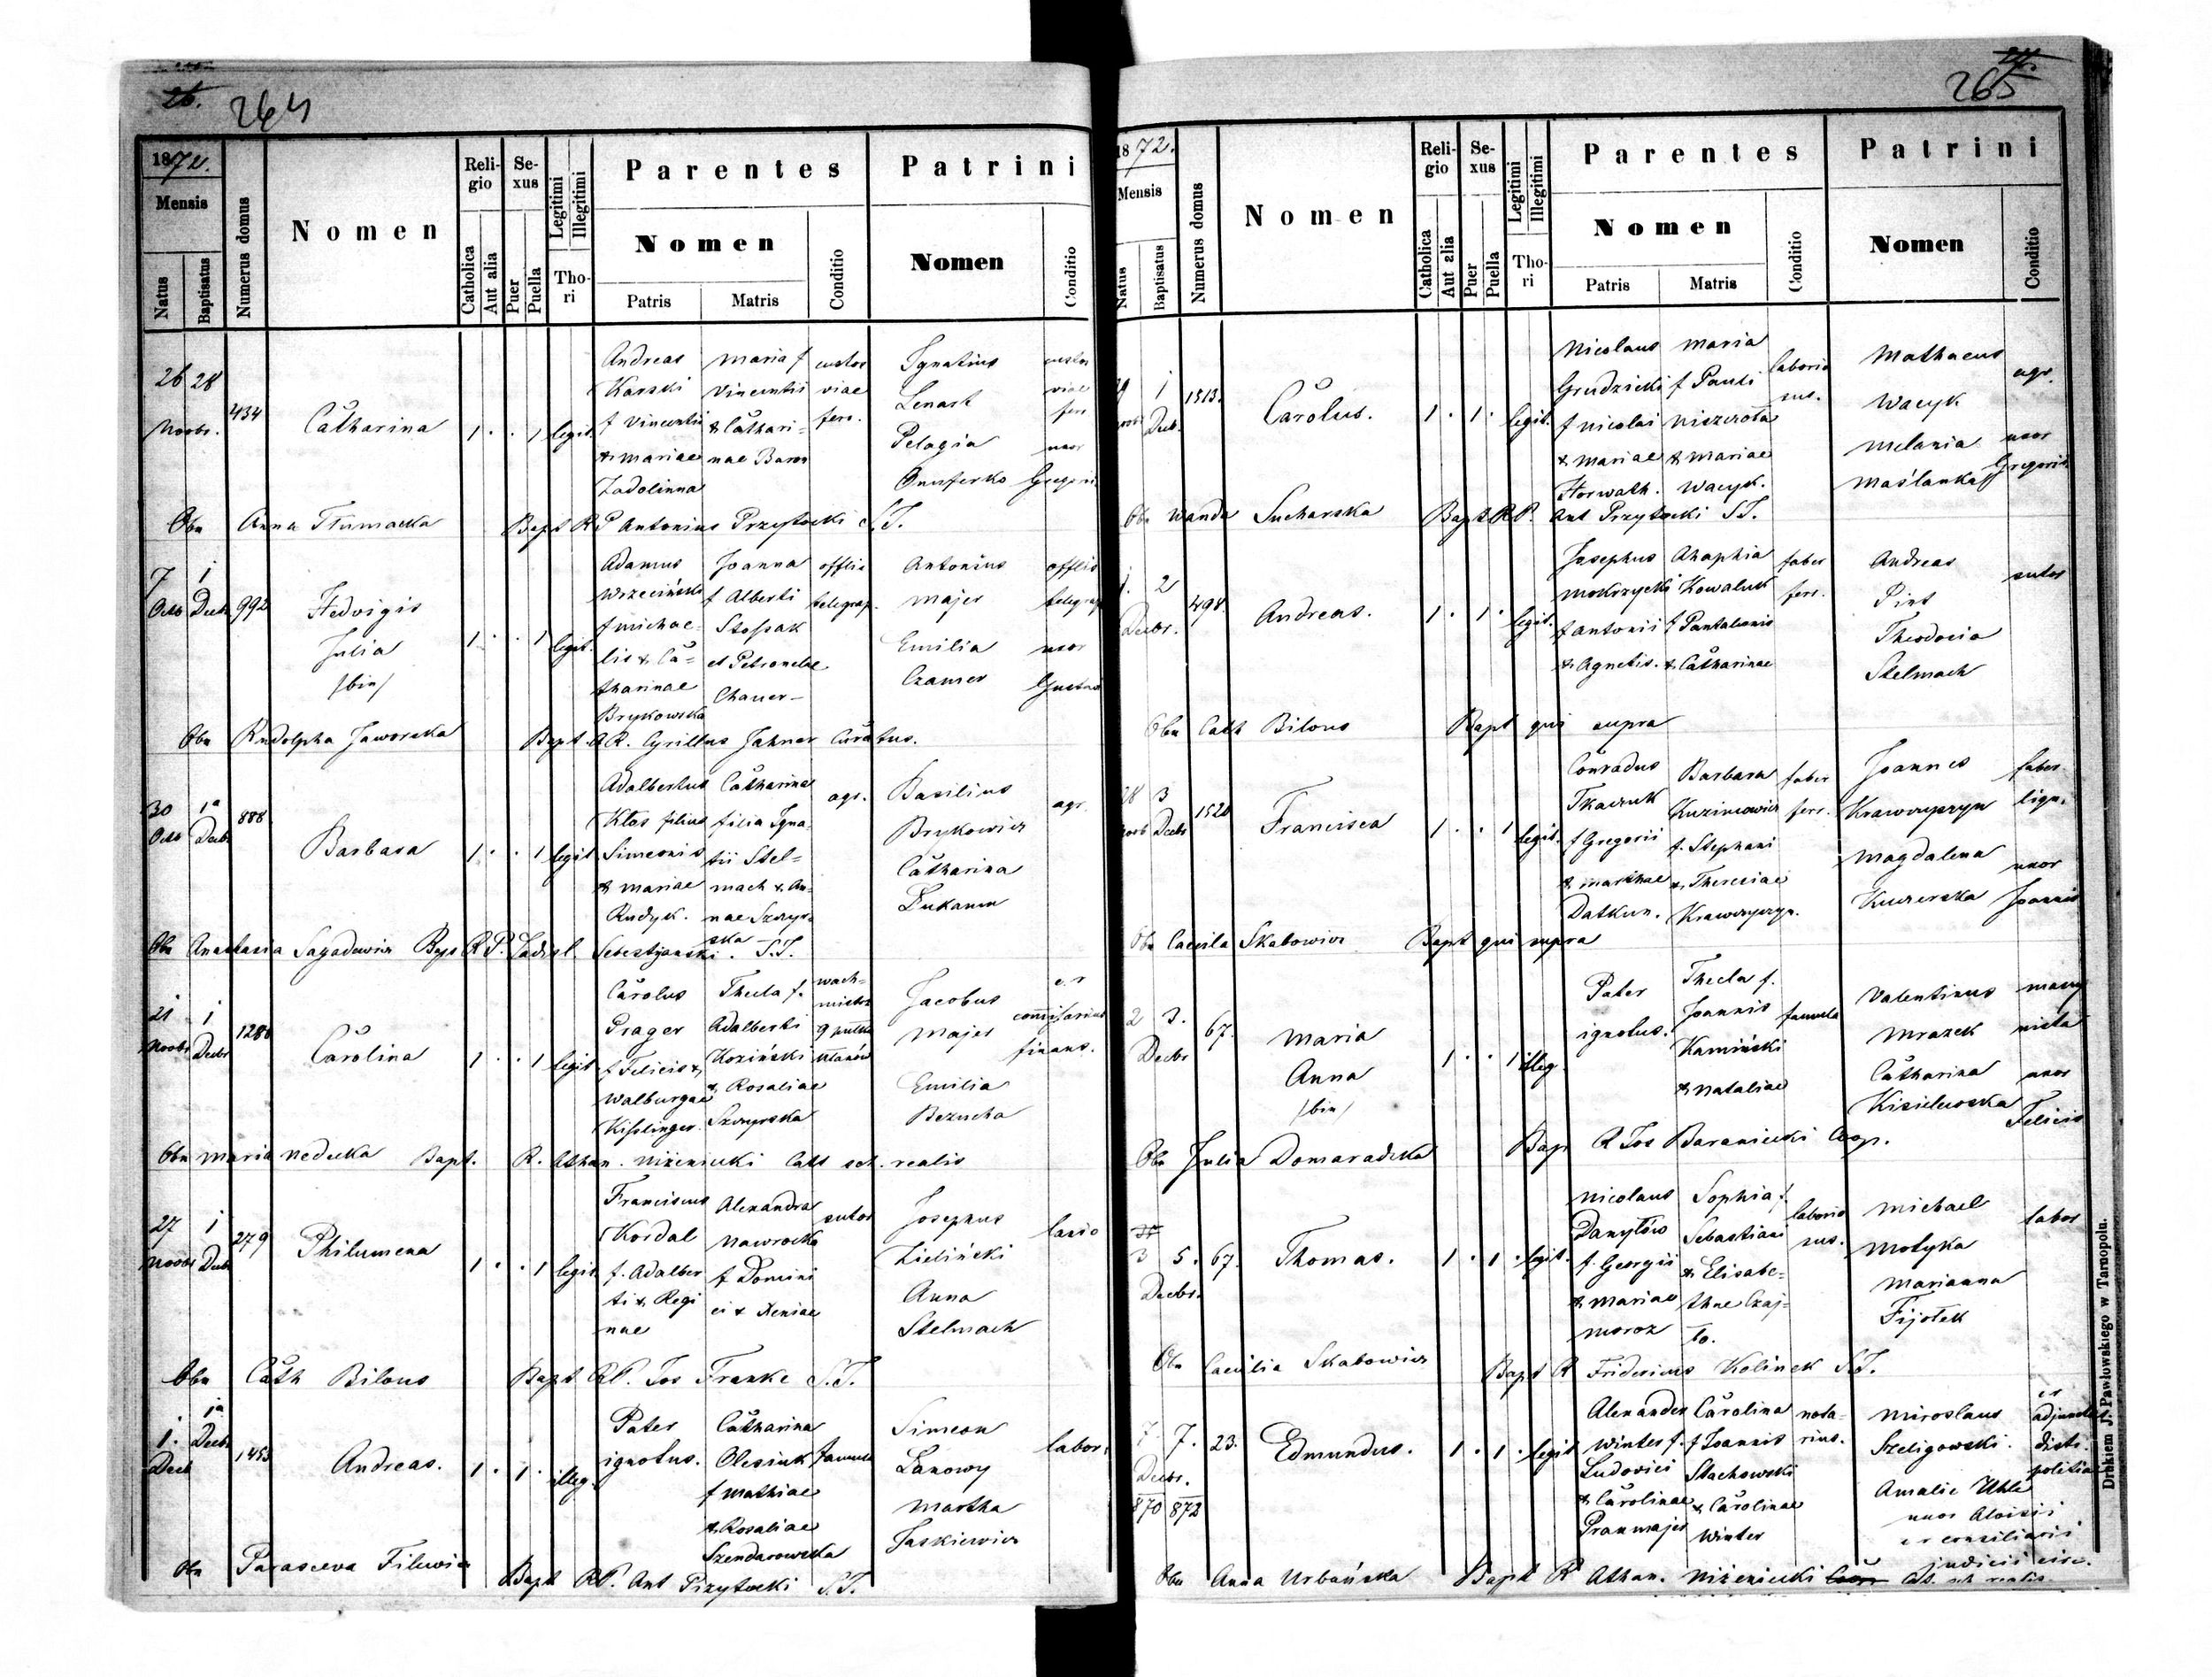 264
1872.
Mensis
Natus
Baptisatus
Numerus domus
Nomen
Religio
Catholica
Aut alia
Sexus
Puer
Puella
Legitimi
Illegitimi
Thori
Parentes
Nomen
Patris
Matris
Conditio
Patrini
Nomen
Conditio
26 28
Novbr.
434
Catharina
1 . . 1 legit.
Andreas
Karski
f Vincentii
& Mariae
Zadolinna
Maria f
Vincentii
& Cathari-
nae Baron
custos
viae
ferr.
Ignatius
Lenart
Pelagia
Onuferko
custos
viae
ferr
uxor
Gregorii
Obs Anna Tłumacka Bapt R P Antonius Przytocki S.J.
7 1
Octo Decb
992
Hedvigis
Julia
/bin/
1 . . 1 legit.
Adamus
Wrzeciński
f Michae-
lis & Ca-
tharinae
Brykowska
Joanna
f Alberti
Stopak
et Petronelae
Chauer-
offici
telegrap.
Antonius
Majer
Emilia
Cramer
offici
telegrap
uxor
Gustavi
Obs Rudolpha Jaworska Bapt. A R. Cyrillus Jahner Curatus.
30 1a
Octo Decbr
888
Barbara
1 . . 1 legit
Adalbertus
Kłos filius
Simeonis
& Mariae
Rudyk.
Catharina
filia Igna-
tii Stel-
mach & An-
nae Szczyr-
ska
agr.
Basilius
Brykowicz
Catharina
Łukanin
agr.
Obs Anastasia Sagadewicz Bapt R P. Ladisl. Sebestjanski. S.J.
21 1
Novbr Decbr
1286
Carolina
1 . . 1 legit
Carolus
Prager
f Felicis &
Walburgae
Kißlinger.
Thecla f.
Adalberti
Koziński
& Rosaliae
Szczyrska
wach-
mistrz
9 pułku
ułanów
Jacobus
Majer
Emilia
Bezucha
c.r
commisarius
finans.
Obs Maria Nedecka Bapt. R. Athan. Niżeniecki Cats sch. realis
27 1
Novbr Decb
279
Philumena
1 . . 1 legit
Franciscus
Kordal
f. Adalber
ti & Regi
nae
Alexandra
Nawrocka
f Domini
ci & Xeniae
sutor
Josephus
Zieliński
Anna
Stelmach
lanio
Obs Cath Bilous Bapt RP. Jos Franke S.J.
1. 1a
Decb Decb
1453
Andreas.
1 . 1 . illeg.
Pater
ignotus.
Catharina
Olesiuk
f Mathiae
& Rosaliae
Szendarowska
famula
Simeon
Łanowy
Martha
Jaskiewicz
labor.
Obs Parasceva Filewicz Bapt RP. Ant Przytocki S.J.
265
1872.
Mensis
Natus
Baptisatus
Numerus domus
Nomen
Religio
Catholica
Aut alia
Sexus
Puer
Puella
Legitimi
Illegitimi
Thori
Parentes
Nomen
Patris
Matris
Conditio
Patrini
Nomen
Conditio
1
Decb.
1513.
Carolus.
1 . 1 . legit.
Nicolaus
Grudzicki
f Nicolai
& Mariae
Horwath.
Maria
f Pauli
Niszczota
& Mariae
Wacyk.
laborio
sus.
Mathaeus
Wacyk
Melania
Maślanka
agr.
uxor
Gregorii
Obs Wanda Sucharska Bapt R P. Ant Przytocki S.J.
1. 2
Decbr.
498.
Andreas.
1 . 1 . legit.
Josephus
Mokrzycki
f Antonii
& Agnetis.
Ahaphia
Kowaluk
f Pantaleonis
& Catharinae
faber
ferr.
Andreas
Pint
Theodosia
Stelmach
sutor
Obs Cath Bilous Bapt qui supra
28 3
Novb Decbr
1528
Francisca
1 . . 1 legit.
Conradus
Tkaczuk
f Gregorii
& Marthae
Datkun.
Barbara
Kuzimowicz
f. Stephani
& Theresiae
Krawczyszyn.
faber
ferr.
Joannes
Krawczyszyn
Magdalena
Kuczerska
faber
lign.
uxor
Joannis
Obs Caecilia Skabowicz Bapt qui supra
2 3.
Decbr
67.
Maria
Anna
/bin/
1 . . 1 illeg.
Pater
ignotus.
Thecla f.
Joannis
Kamiński
& Nataliae
famula
Valentinus
Mrazek
Catharina
Kisielewska
uxor
Felicis
Obs Julia Domaradzka Bap R Jos Baraniecki Coop.
3 5.
Decbr.
67.
Thomas.
1 . 1 . legit.
Nicolaus
Danyłów
f. Georgii
& Mariae
Moroz
Sophia f.
Sebastiani
& Elisabe-
thae Czaj-
ło.
laborio
sus.
Michael
Motyka
Marianna
Fijołek
labor
Obs Caecilia Skabowicz Bapt R Fridericus Kolinek S.J.
7. 7.
Decbr.
870 872
23.
Edmundus.
1 . 1 . legit
Alexander
Winter f.
Ludovici
& Carolinae
Pranmajer
Carolina
f Joannis
Stachowski
& Carolinae
Winter
nota-
rius.
Miroslaus
Szeligowski.
Amalie Uhle
uxor Aloisii
cr consiliarii
judicii circ.
cr
adjunctus
distr.
politiae
Obs Anna Urbańska Bapt R Athan. Niżeniecki Cat. sch realis.
Drukiem J. Pawłowskiego w Tarnopolu.